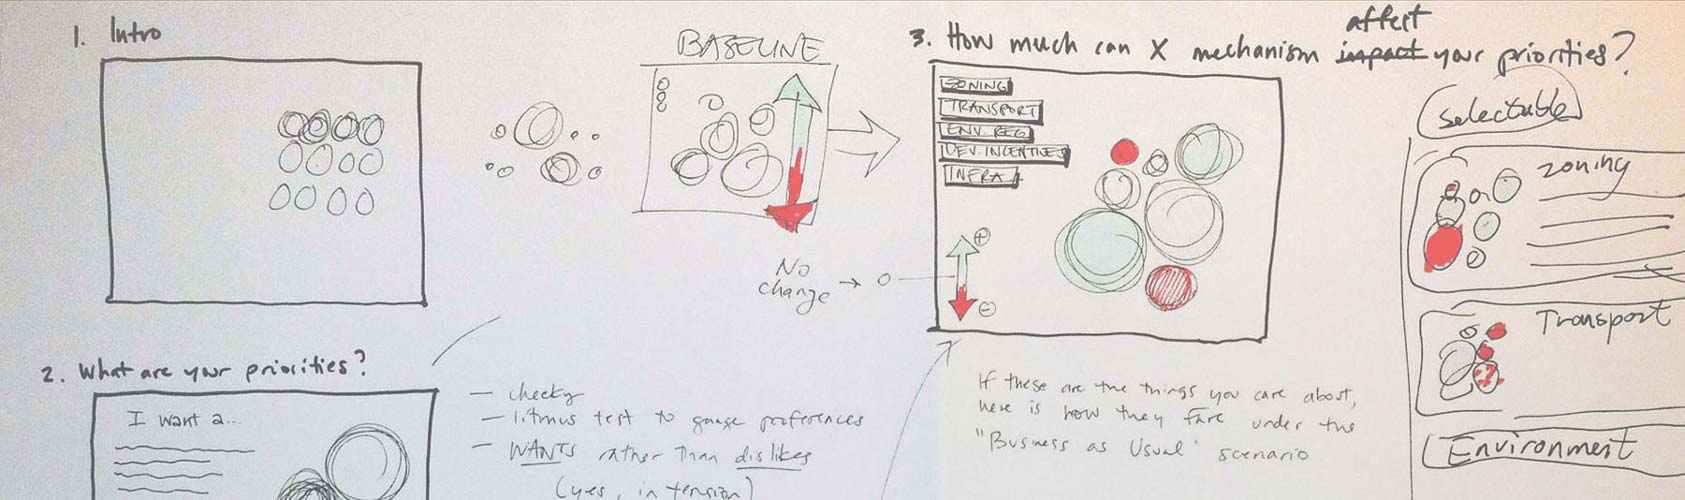 1. Intro
BASELINE
3. How much can X mechanism impact your priorities?
affect
ZONING
TRANSPORT
ENV. REG
DEV. INCENTIVES
INFRA
+
-
No
change → 0
Selectable
Zoning
Transport
Environment
2. What are your priorities?
I want a...
- cheeky
- litmus test to gauge preferences
- WANTS rather than dislikes
(yes, in tension)
If these are the things you care about,
here is how they fare under the
"Business as Usual" scenario